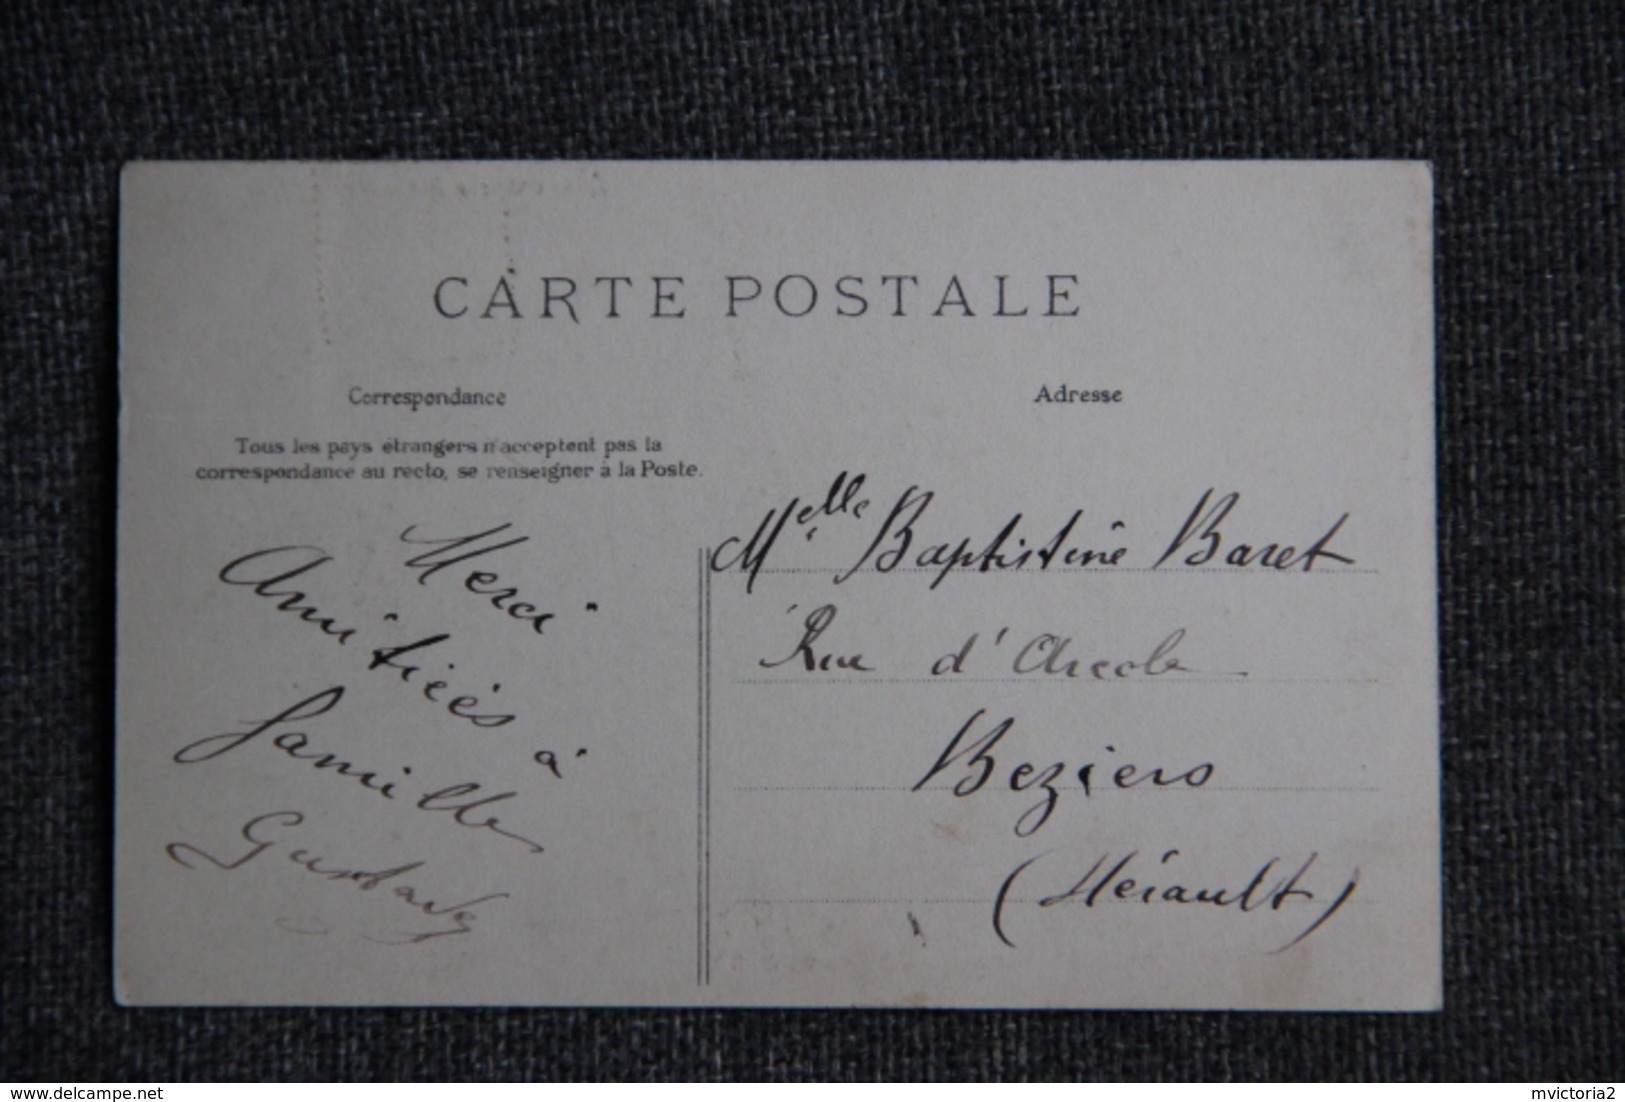 CARTE POSTALE
Correspondance
Tous les pays étrangers n'acceptent pas la
correspondance au recto, se renseigner à la Poste.
Merci
Amitiées à
famille
Gustave
Adresse
Melle Baptistine Baret
Rue d'Arcole
Beziers
(Hérault)
delcampe.net
mvictoria2